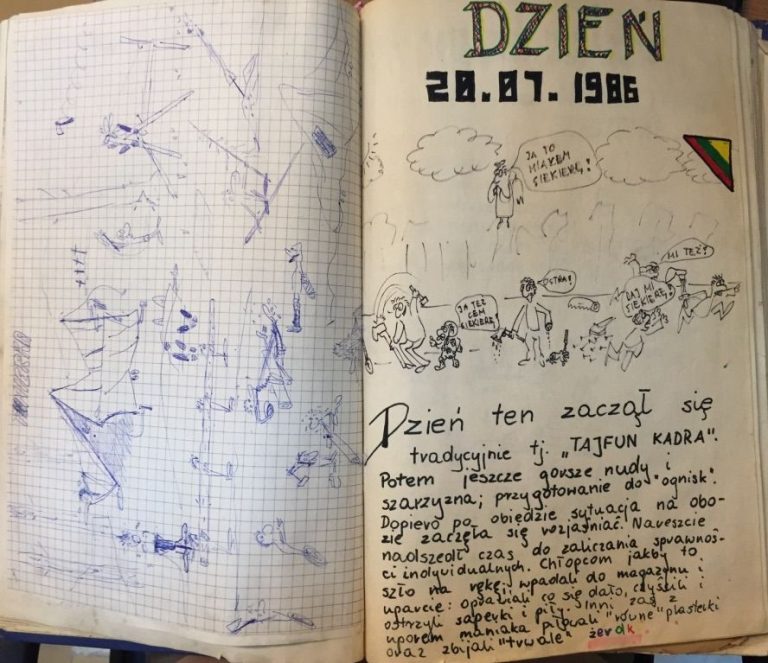 DZIEŃ
20.07.1986
JA TO MIAŁEM SIEKIERĘ!
MI TEŻ!
OSTRA!
DAJ MI SIEKIERĘ!
JA TEŻ CEM SIEKIERĘ!
Dzień ten zaczął się
tradycyjnie tj. „TAJFUN KADRA".
Potem jeszcze gorsze nudy i
szarzyzna; przygotowanie do "ognisk".
Dopiero po obiedzie sytuacja na obo-
zie zaczęła się rozjaśniać. Nareszcie
nadszedł czas do zaliczania sprawnoś-
ci indywidualnych. Chłopcom jakby to
szło na rękę; wpadali do magazynu i
uparcie: opalali co się dało, czyścili i
ostrzyli saperki i piły. Inni zaś z
uporem maniaka piłowali "równe" plasterki
oraz zbijali "trwałe" żerdk